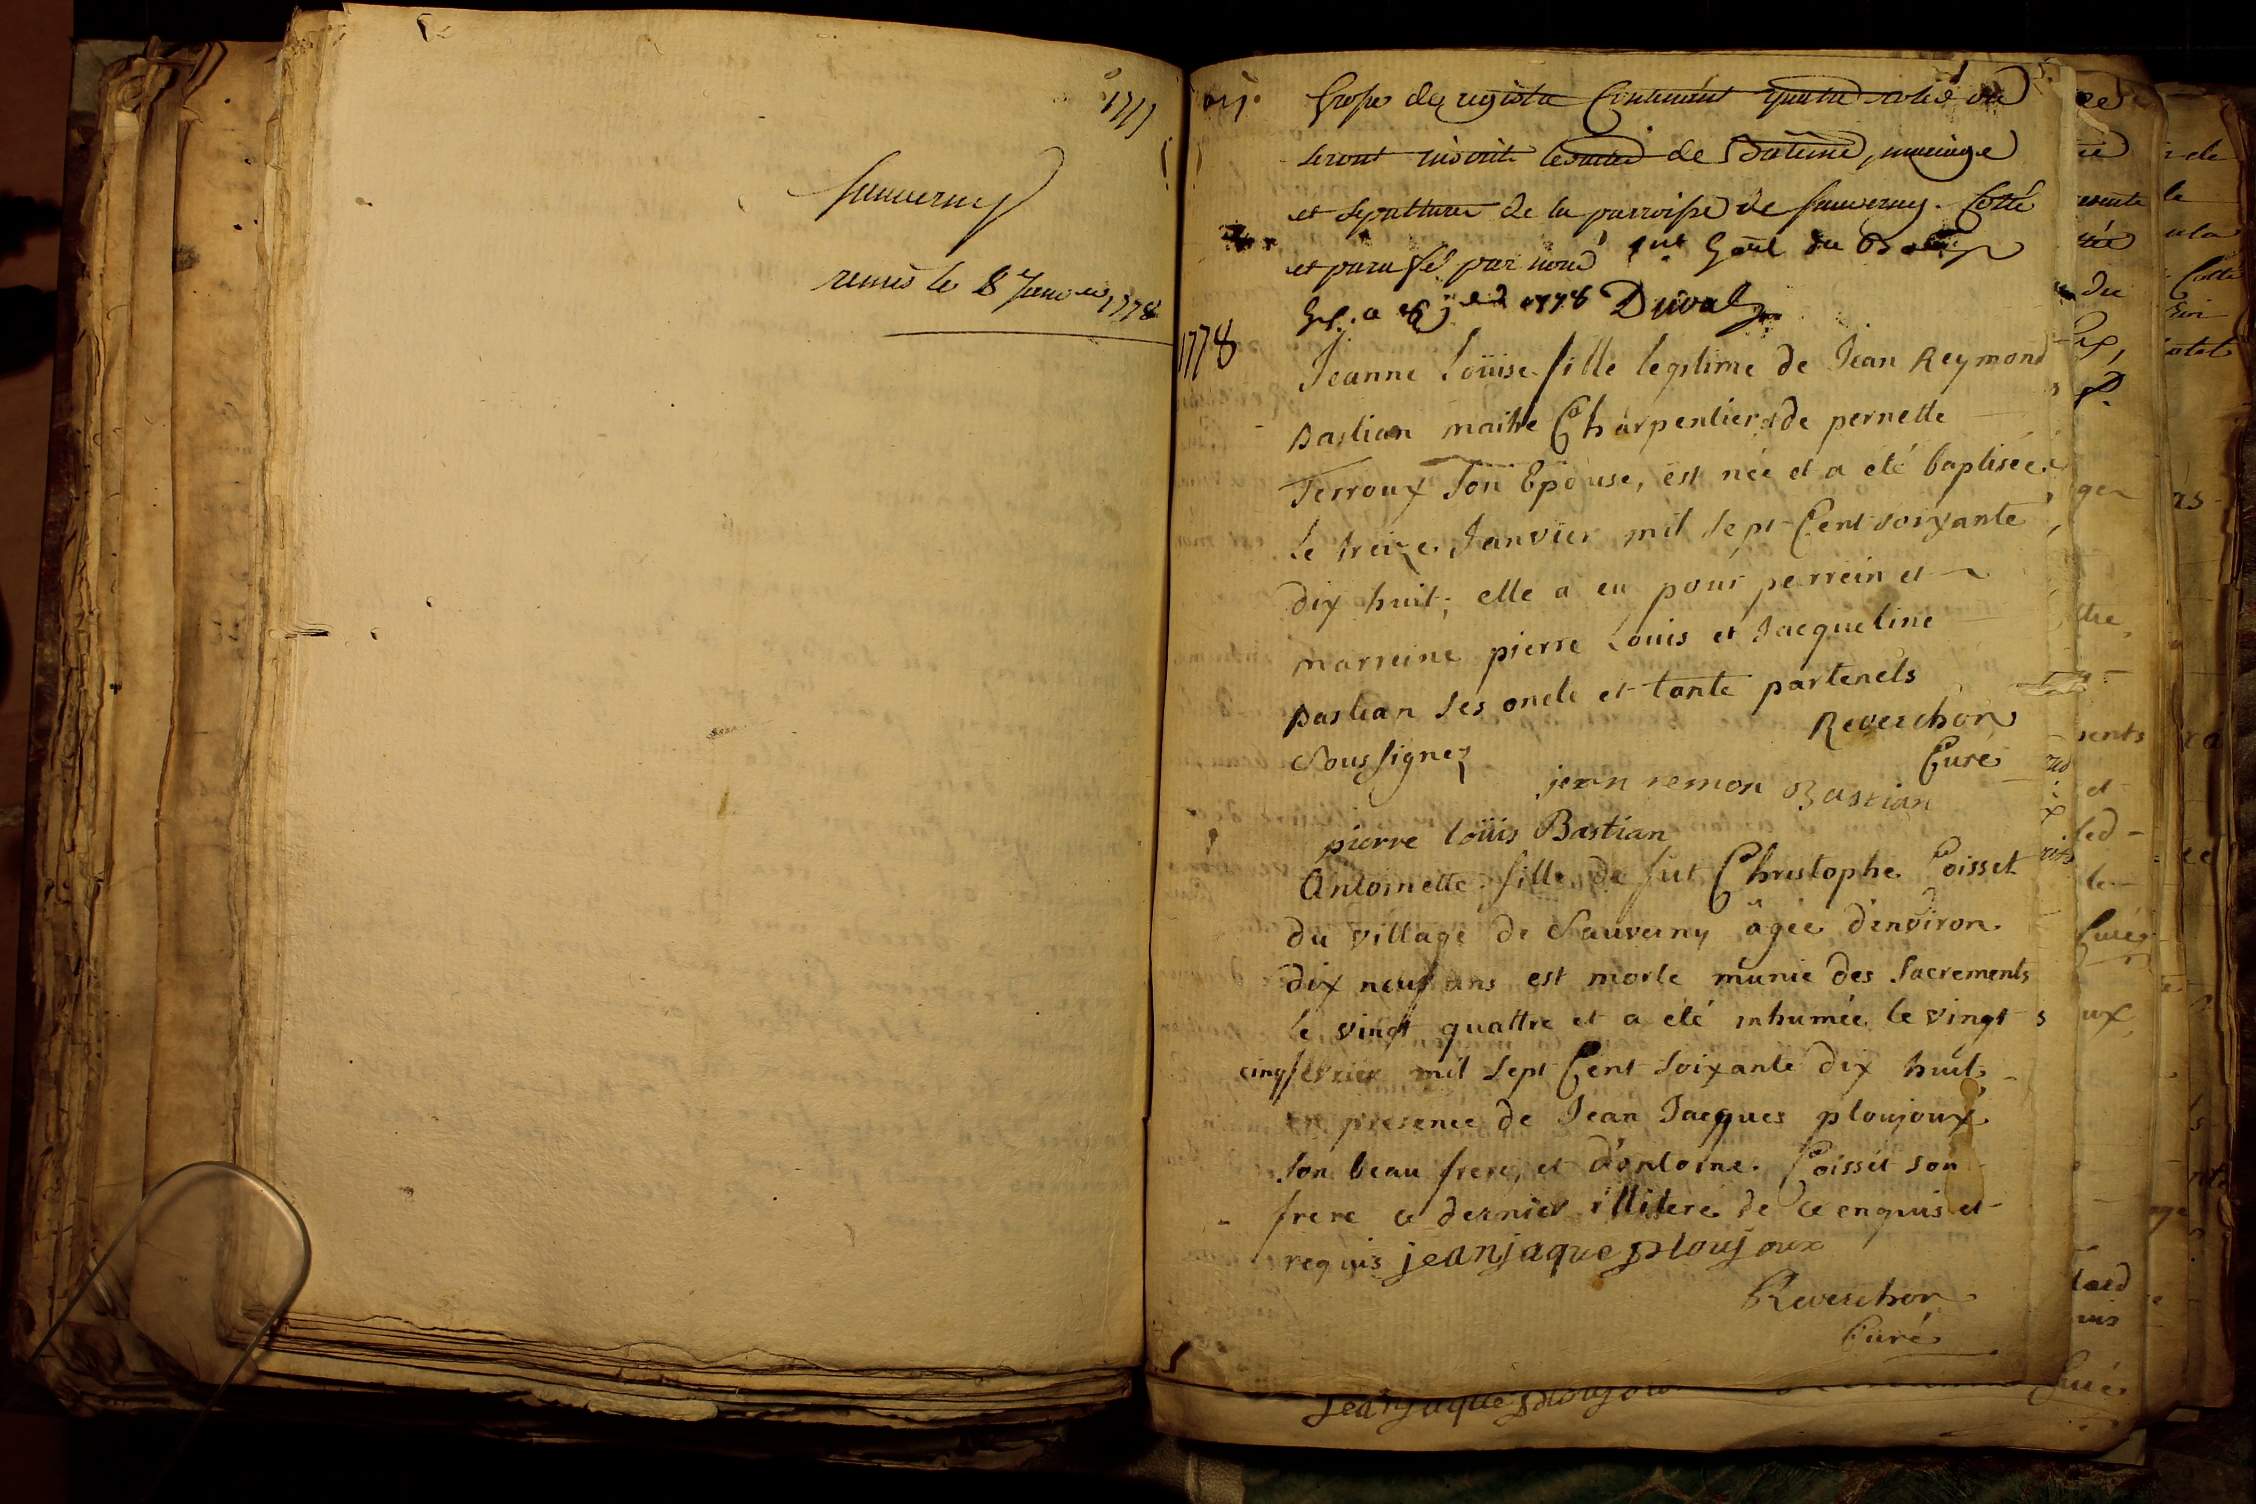 1777
Sauverny
remis le 8 Janvier 1778
Grosse de registre contenant quatre
seront inscrit les actes de Batême, mariage
et sepulture de la parroisse de Sauverny. Cotté
et parafé par nous du
Gex a 1778 Duval
1778
Jeanne Loüise fille legitime de Jean Reymond
Bastian maitre Charpentier et de pernette
Terroux Son Epouse, est née et a été baptisée
le treize Janvier mil sept Cent soixante
dix huit; elle a eu pour perrein et
marreine pierre Louis et Jacqueline
Bastian ses oncle et tante partenels
Soussignez
Reverchon
Curé
jean remon Bastian
pierre loüis Bastian
Antoinette fille de fut Christophe Coisset
du village de Sauverny âgée d'environ
dix neuf ans est morte munie des Sacrements
le vingt quattre et a été inhumée le vingt
cinq fevrier mil sept Cent soixante dix huit
en presence de Jean Jacques ploujoux
son beau frere, et d'antoine Coisset son
frere ce dernier illiteré de ce enquis et
requis jeanjaque ploujoux
Reverchon
Curé
Jeanjaque ploujou
Curé